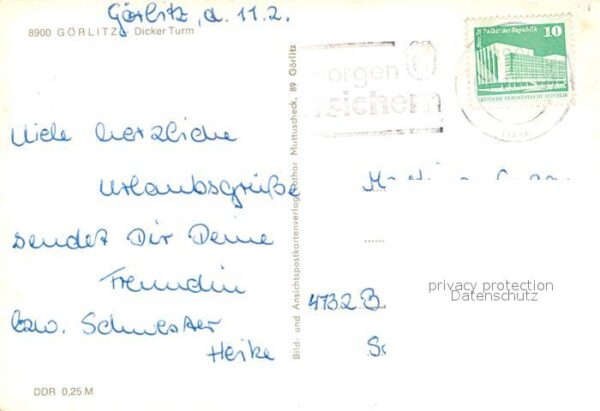 Görlitz, d. 11.2.
8900 GÖRLITZ Dicker Turm
Viele herzliche
Urlaubsgrüße
sendet Dir Deine
Freundin
bzw. Schwester
Heike
DDR 0,25 M
Bild- und Ansichtspostkartenverlag Lothar Muttuscheck, 89 Görlitz
sorgen
sichern
Berlin Palast der Republik
10
DEUTSCHE DEMOKRATISCHE REPUBLIK
4732 B
privacy protection
Datenschutz